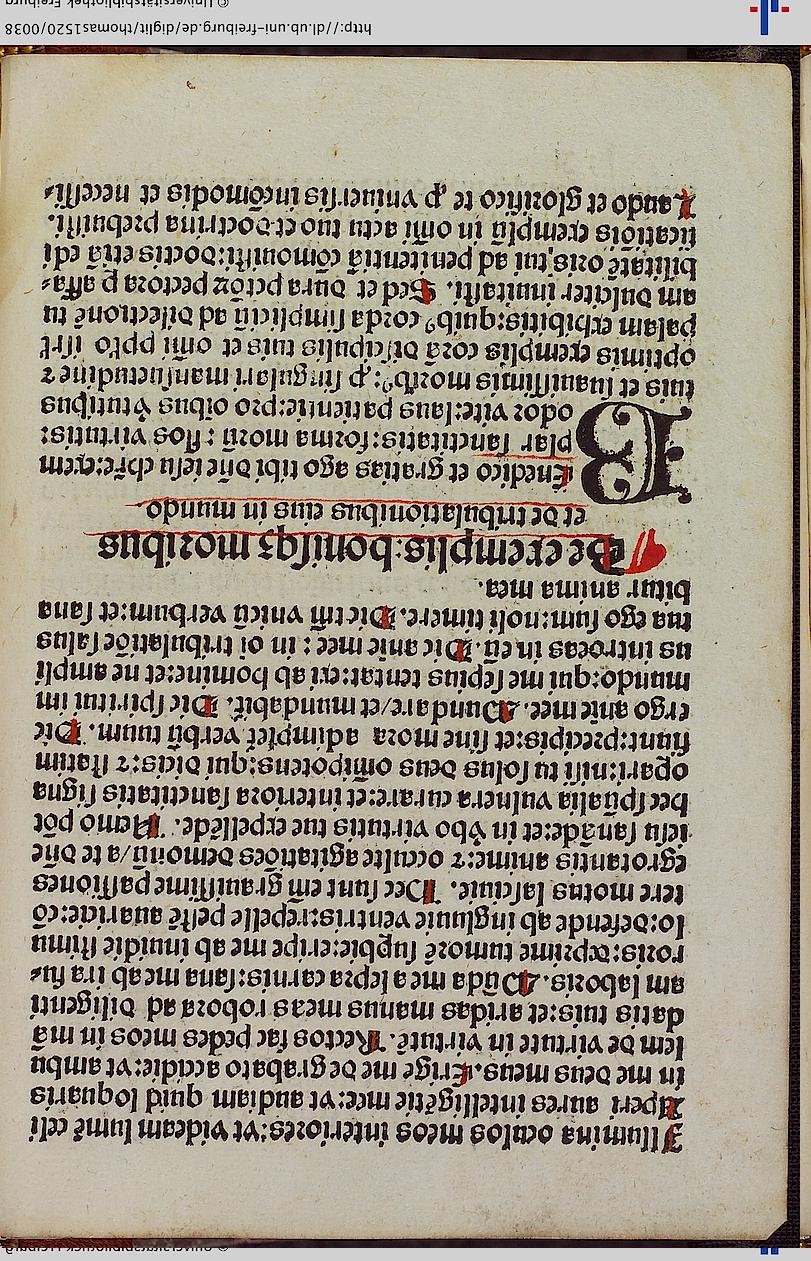 Illumina oculos meos interiores:vt videam lumē celi
Aperi aures intelligētie mee:vt audiam quid loquaris
in me deus meus. Erige me de grabato accidie:vt ambu
lem de virtute in virtutē. Rectos fac pedes meos in mā
datis tuis:et aridas manus meas robora ad diligenti
am laboris. Mūda mea lepra carnis:sana me ab ira fu⸗
roris:deprime tumorē supbie:eripe me ab inuidie stimu
lo:defende ab ingluuie ventris:repelle pestē auaricie:cō
tere motus lasciuie. Hec sunt em̄ grauissime passiones
egrotantis anime:⁊ occulte agitatiōes demonū/a te dn̄e
iesu sanāde:et in v̓bo virtutis tue expellēde. Nemo pōt
hec spūalia vulnera curare:et interiora sanctitatis signa
opari:nisi tu solus deus omīpotens:qui dicis:⁊ statim
fiunt:precipis:et sine mora adimplet̄ verbū tuum. Dic
ergo aīe mee. Mundare/et mundabit̄. Dic spiritui im
mundo:qui me sepius tentat:exi ab homine:et ne ampli
us introeas in eū. Dic aīe mee : in oī tribulatiōe salus
tua ego sum:noli timere. Dic tm̄ vnicū verbum:et sana
bitur anima mea.
¶ De exemplis:bonisqꝫ moribus
et de tribulationibus eius in mundo
BEnedico et gratias ago tibi dn̄e iesu chr̄e:exem
plar sanctitatis:forma morū : flos virtutis:
odor vite:laus patientie:pro oībus v̓tutibus
tuis et suauissimis moribꝰ:⁊ p̱ singulari mansuetudine ⁊
optimis exemplis corā discipulis tuis et omī pplo isrl̄
palam exhibitis:quibꝰ corda simpliciū ad dilectionē tu
am dulciter inuitasti. Sed et dura pctōꝝ pectora ꝑ affa⸗
bilitatē oris tui ad penitentiā cōmouisti:doctis etiā edi
ficatiōis exemplū in omī actu tuo et doctrina prebuisti.
Laudo et glorifico te ꝓ vniuersis incōmodis et necessi⸗
http://dl.ub.uni-freiburg.de/diglit/thomas1520/0038
© Universitätsbibliothek Freiburg